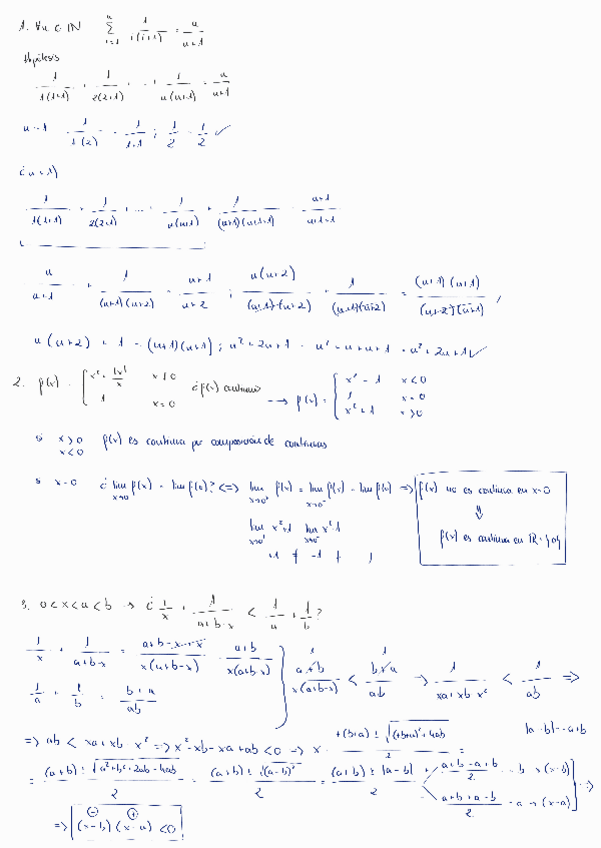 1. ∀n ∈ ℕ ∑_{i=1}^{n} 1/(i(i+1)) = n/(n+1)
Hipótesis
1/(1(1+1)) + 1/(2(2+1)) + ... + 1/(n(n+1)) = n/(n+1)
n=1 1/(1(2)) = 1/(1+1) ; 1/2 = 1/2 ✓
¿n+1)
1/(1(1+1)) + 1/(2(2+1)) + ... + 1/(n(n+1)) + 1/((n+1)(n+1+1)) = (n+1)/(n+1+1)
n/(n+1) + 1/((n+1)(n+2)) = (n+1)/(n+2) ; n(n+2)/((n+1)(n+2)) + 1/((n+1)(n+2)) = (n+1)(n+1)/((n+2)(n+1)) ,
n(n+2) + 1 = (n+1)(n+1) ; n²+2n+1 = n²+n+n+1 = n²+2n+1 ✓
2. f(x) = { x² + |x|/x x≠0 ; 1 x=0 ¿f(x) continua → f(x) = { x² - 1 x<0 ; 1 x=0 ; x²+1 x>0
si x>0 x<0 f(x) es continua por composición de continuas
si x=0 ¿lim x→0 f(x) = lim f(x)? <=> lim x→0⁺ f(x) = lim x→0⁻ f(x) = lim f(x) => f(x) no es continua en x=0
⇓
lim x→0⁺ x²+1 lim x→0⁻ x²-1 f(x) es continua en ℝ-{0}
+1 ≠ -1 ≠ 1
3. 0<x<a<b → ¿ 1/x + 1/(a+b-x) < 1/a + 1/b ?
1/x + 1/(a+b-x) = (a+b-x+x)/(x(a+b-x)) = (a+b)/(x(a+b-x))
1/a + 1/b = (b+a)/(ab) } (a+b)/(x(a+b-x)) < (b+a)/(ab) → 1/(xa+xb-x²) < 1/(ab) =>
=> ab < xa+xb-x² => x²-xb-xa+ab<0 => x = (+(b+a) ± √((+b+a)²-4ab))/2 = |a-b|=-a+b
= ((a+b) ± √(a²+b²+2ab-4ab))/2 = ((a+b) ± √(a-b)²)/2 = ((a+b) ± |a-b|)/2 (a+b-a+b)/2 = b → (x-b) (a+b+a-b)/2 = a → (x-a) } =>
=> (x-b)(x-a) <0